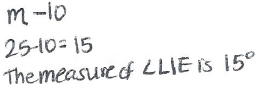 m-10
25-10=15
The measure of ∠LIE is 15°